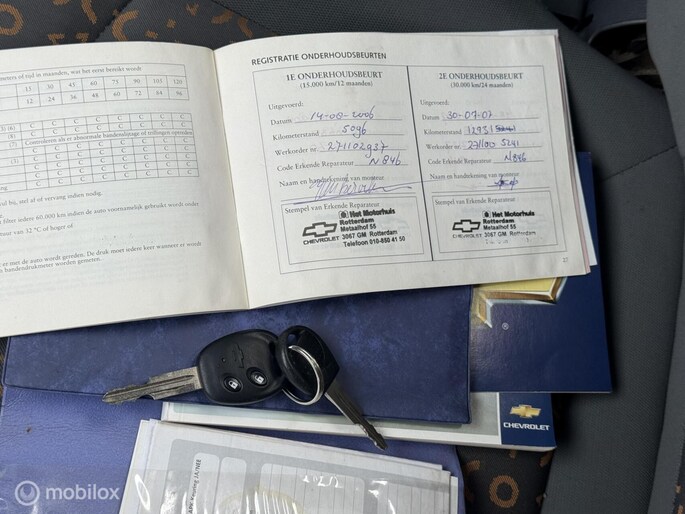 meters of tijd in maanden, wat het eerst bereikt wordt
15 30 45 60 75 90 105 120
12 24 36 48 60 72 84 96
C C C C C C C C
C C C C C C C C
Controleren als er abnormale
C C C C C C C C
C C C C C C C C
C C C C C C C C
bij, af of vervang indien nodig.
filter iedere 60.000 km indien de auto voornamelijk gebruikt wordt onder
van 32 °C of hoger of
er met de auto wordt gereden. De druk moet iedere keer wanneer er
bandendrukmeter worden gemeten.
REGISTRATIE ONDERHOUDSBEURTEN
1E ONDERHOUDSBEURT
(15.000 km/12 maanden)
Uitgevoerd:
Datum 14-08-2006
Kilometerstand 5096
Werkorder nr: 271102937
Code Erkende Reparateur N846
Naam en handtekening van monteur
Stempel van Erkende Reparateur
Het Motorhuis
Rotterdam
Metaalhof 55
CHEVROLET 3067 GM Rotterdam
Telefoon 010-850 41 50
2E ONDERHOUDSBEURT
(30.000 km/24 maanden)
Uitgevoerd:
Datum 30-07-07
Kilometerstand 12931
Werkorder nr: 5241
Code Erkende Reparateur N846
Naam en handtekening van monteur
Stempel van Erkende Reparateur
Het Motorhuis
Rotterdam
Metaalhof 55
CHEVROLET 3067 GM Rotterdam
27
®
CHEVROLET
mobilox